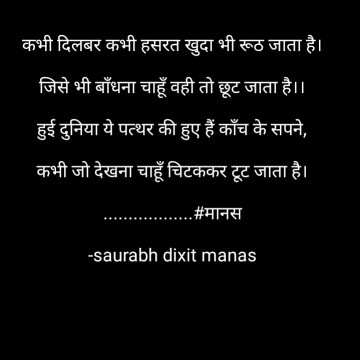 कभी दिलबर कभी हसरत खुदा भी रूठ जाता है।
जिसे भी बाँधना चाहूँ वही तो छूट जाता है।।
हुई दुनिया ये पत्थर की हुए हैं काँच के सपने,
कभी जो देखना चाहूँ चिटककर टूट जाता है।
..................#मानस
-saurabh dixit manas